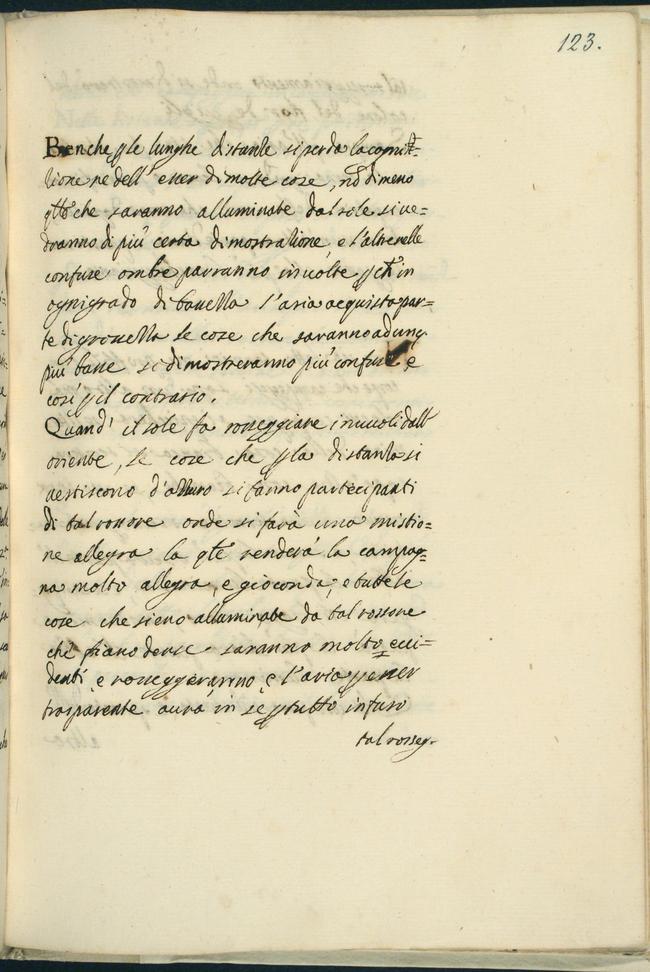 123.
Benche p le lunghe distanze si perda la cogni=
zione ne dell' esser di molte cose, nõ dimeno
qlle che saranno alluminate dal sole si ve=
dranno di più certa dimostrazione e l'altre nelle
confuse ombre parranno involte p chè in
ogni grado di bassezza l'aria acquista par=
te di grossezza le cose che saranno adunq
più basse si dimostreranno più confuse, e
così p il contrario.
Quand' il sole fa rosseggiare i nuvoli dall'
oriente, le cose che p la distanza si
vestiscono d'azzuro si fanno partecipanti
di tal rossore onde si farà una mistio=
ne allegra la qle renderà la campag=
na molto allegra, e gioconda, e tutte le
cose che sieno alluminate da tal rossore
che siano dense saranno molto evi=
denti, e rosseggeranno, e l'aria p esser
trasparente aurà in se p tutto infuso
tal rosseg-